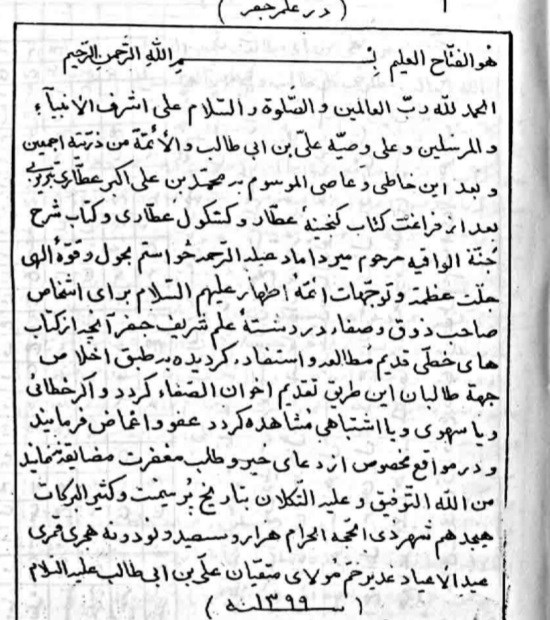 ( در علم جفر )
هو الفتاح العلیم بسم الله الرحمن الرحیم
الحمد لله ربّ العالمین و الصّلوة و السّلام علی اشرف الانبیآء
و المرسلین و علی وصیّه علیّ بن ابی طالب و الأئمّة من ذریّته اجمعین
و بعد این خاطی و عاصی الموسوم به محمّد بن علی اکبر عطّاری تبریزی
بعد از فراغت کتاب گنجینهٔ عطّار و کشکول عطّاری و کتاب شرح
جنّة الواقیه مرحوم میرداماد علیه الرّحمه خواستم بحول و قوّهٔ الهی
جلّت عظمته و توجّهات ائمّهٔ اطهار علیهم السّلام برای اشخاص
صاحب ذوق و صفاء در رشتهٔ علم شریف جفر آنچه از کتاب
های خطّی قدیم مطالعه و استفاده گردیده به طبق اخلاص
جهة طالبان این طریق تقدیم اخوان الصّفاء گردد و اگر خطائی
و یا سهوی و یا اشتباهی مشاهده گردد عفو و اغماض فرمایند
و در مواقع مخصوص از دعای خیر و طلب مغفرت مضایقه ننمایند
من الله التّوفیق و علیه التّکلان بتاریخ پر میمنت و کثیر البرکات
هیجدهم شهر ذی الحجّه الحرام هزار و سیصد و نود و نه هجری قمری
عید الاعیاد غدیر خم مولای متّقیان علی بن ابی طالب علیه السّلام
( سنة ۱۳۹۹ )